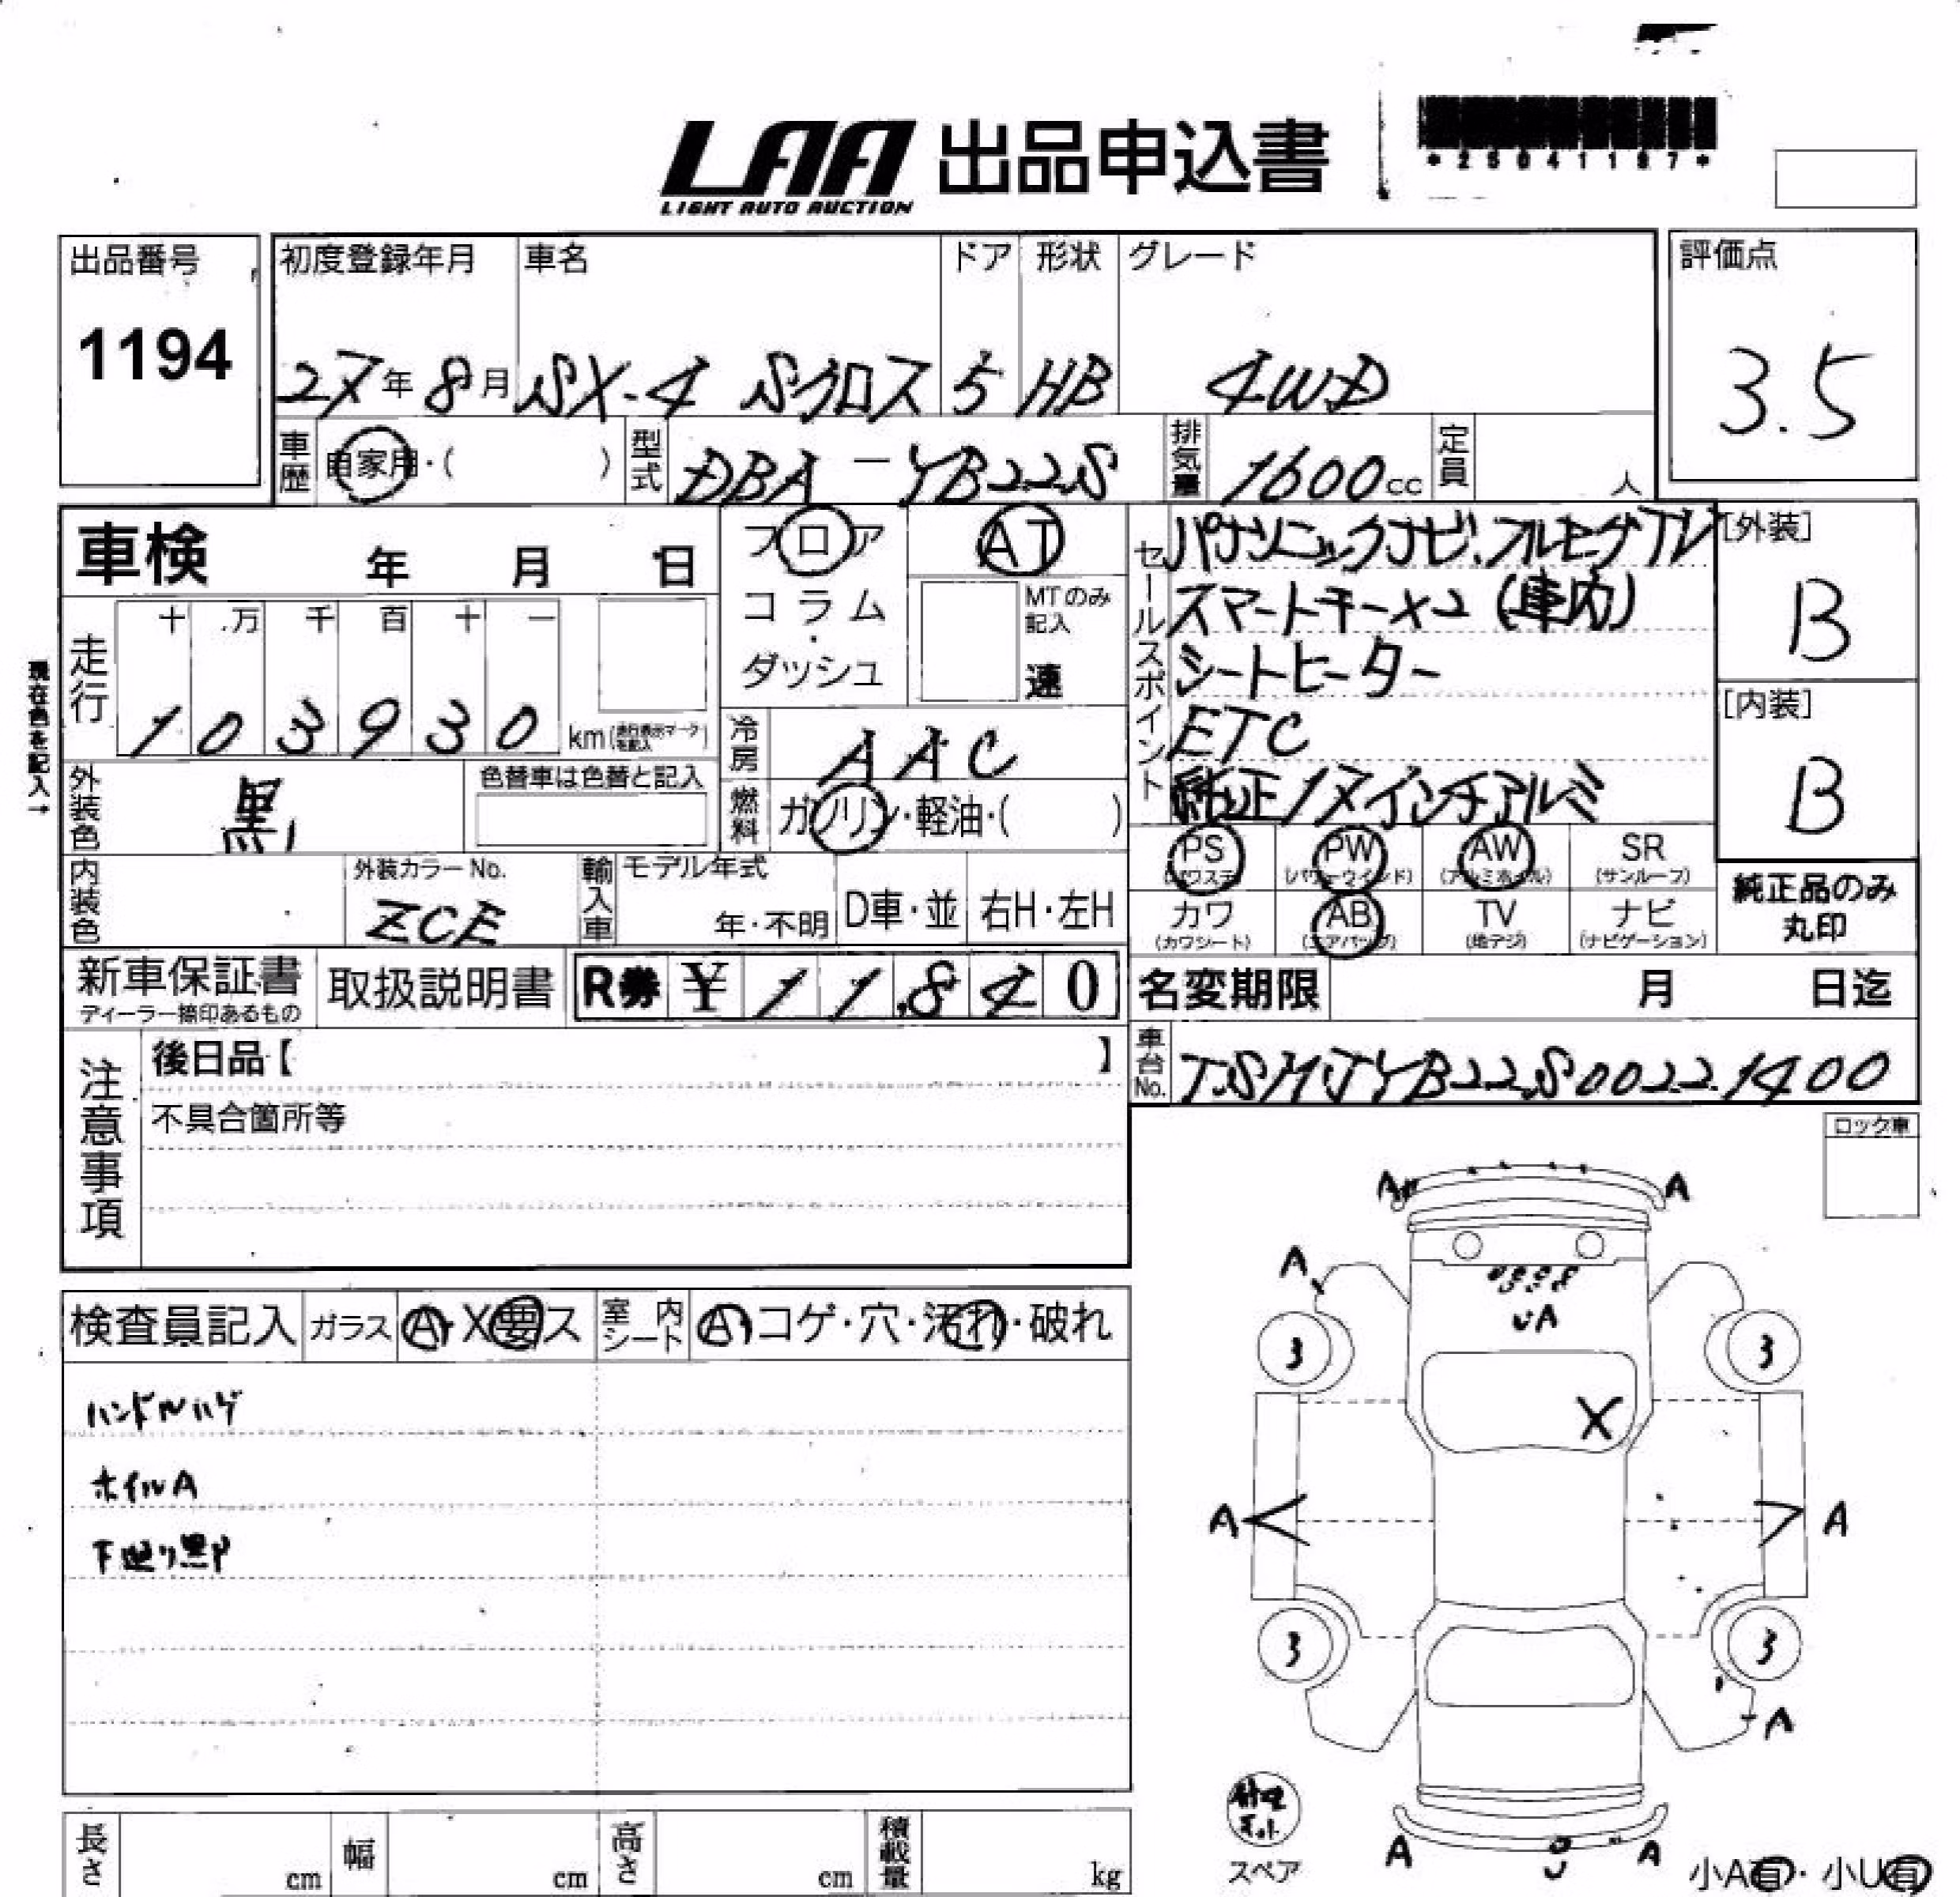 LAA 出品申込書
LIGHT AUTO AUCTION
*25041197*
出品番号 初度登録年月 車名 ドア 形状 グレード 評価点
1194 27年 8月 SX-4 Sクロス 5 HB 4WD 3.5
車歴 自家用・( ) 型式 DBA-YB22S 排気量 1600cc 定員 人
車検 年 月 日 フロア AT
コラム・ MTのみ記入
ダッシュ 速
セールスポイント
パナソニックナビ、フルセグTV
スマートキー×2 (車内)
シートヒーター
ETC
純正17インチアルミ
[外装] B
[内装] B
走行 十 万 千 百 十 一
103930 km(走行表示マークを記入)
現在色を記入→
冷房 AAC
外装色 黒 色替車は色替と記入
燃料 ガソリン・軽油・( )
PS(パワステ) PW(パワーウインド) AW(アルミホイル) SR(サンルーフ)
カワ(カワシート) AB(エアバッグ) TV(地デジ) ナビ(ナビゲーション)
純正品のみ丸印
内装色 外装カラーNo. ZCE 輸入車 モデル年式 年・不明 D車・並 右H・左H
新車保証書 ディーラー捺印あるもの 取扱説明書 R券 ¥11,840 名変期限 月 日迄
注意事項 後日品【 】
車台No. TSMJYB22S00221400
不具合箇所等
ロック車
検査員記入 ガラス A・X要ス 室内シート A・コゲ・穴・汚れ・破れ
ハンドルハゲ
ホイルA
下廻りサビ
A A
A
UA
3 3
X
A A
3 3
A
A U A
修理キット
スペア
小A有・小U有
長さ cm 幅 cm 高さ cm 積載量 kg